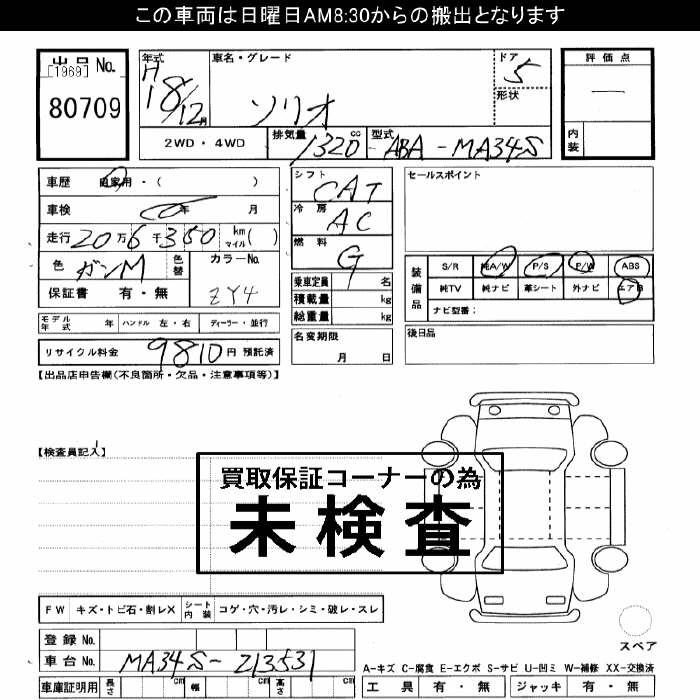 この車両は日曜日AM8:30からの搬出となります
出品No.
[1969]
80709
年式
H18/12月
車名・グレード
ソリオ
ドア
5
形状
2WD・4WD
排気量
1320
cc
型式
ABA-MA34S
評価点
―
内装
車歴
自家用・( )
車検
年 月
走行 20万6千350 km マイル( )
色
ガンM
色替
カラーNo.
ZY4
保証書 有・無
シフト
CAT
冷房
AC
燃料
G
乗車定員 名
積載量 kg
総重量 kg
名変期限
月 日
セールスポイント
装備品
S/R 純A/W P/S P/W ABS
純TV 純ナビ 革シート 外ナビ エアB
ナビ型番:
後日品
モデル年式 年 ハンドル 左・右 ディーラー・並行
リサイクル料金 9810円 預託済
【出品店申告欄(不良箇所・欠品・注意事項等)】
【検査員記入】
買取保証コーナーの為
未検査
FW キズ・トビ石・割レX シート内装 コゲ・穴・汚レ・シミ・破レ・スレ
登録No.
車台No. MA34S-213531
車庫証明用 長さ cm 幅 cm 高さ cm
スペア
A-キズ C-腐食 E-エクボ S-サビ U-凹ミ W-補修 XX-交換済
工具 有・無 ジャッキ 有・無